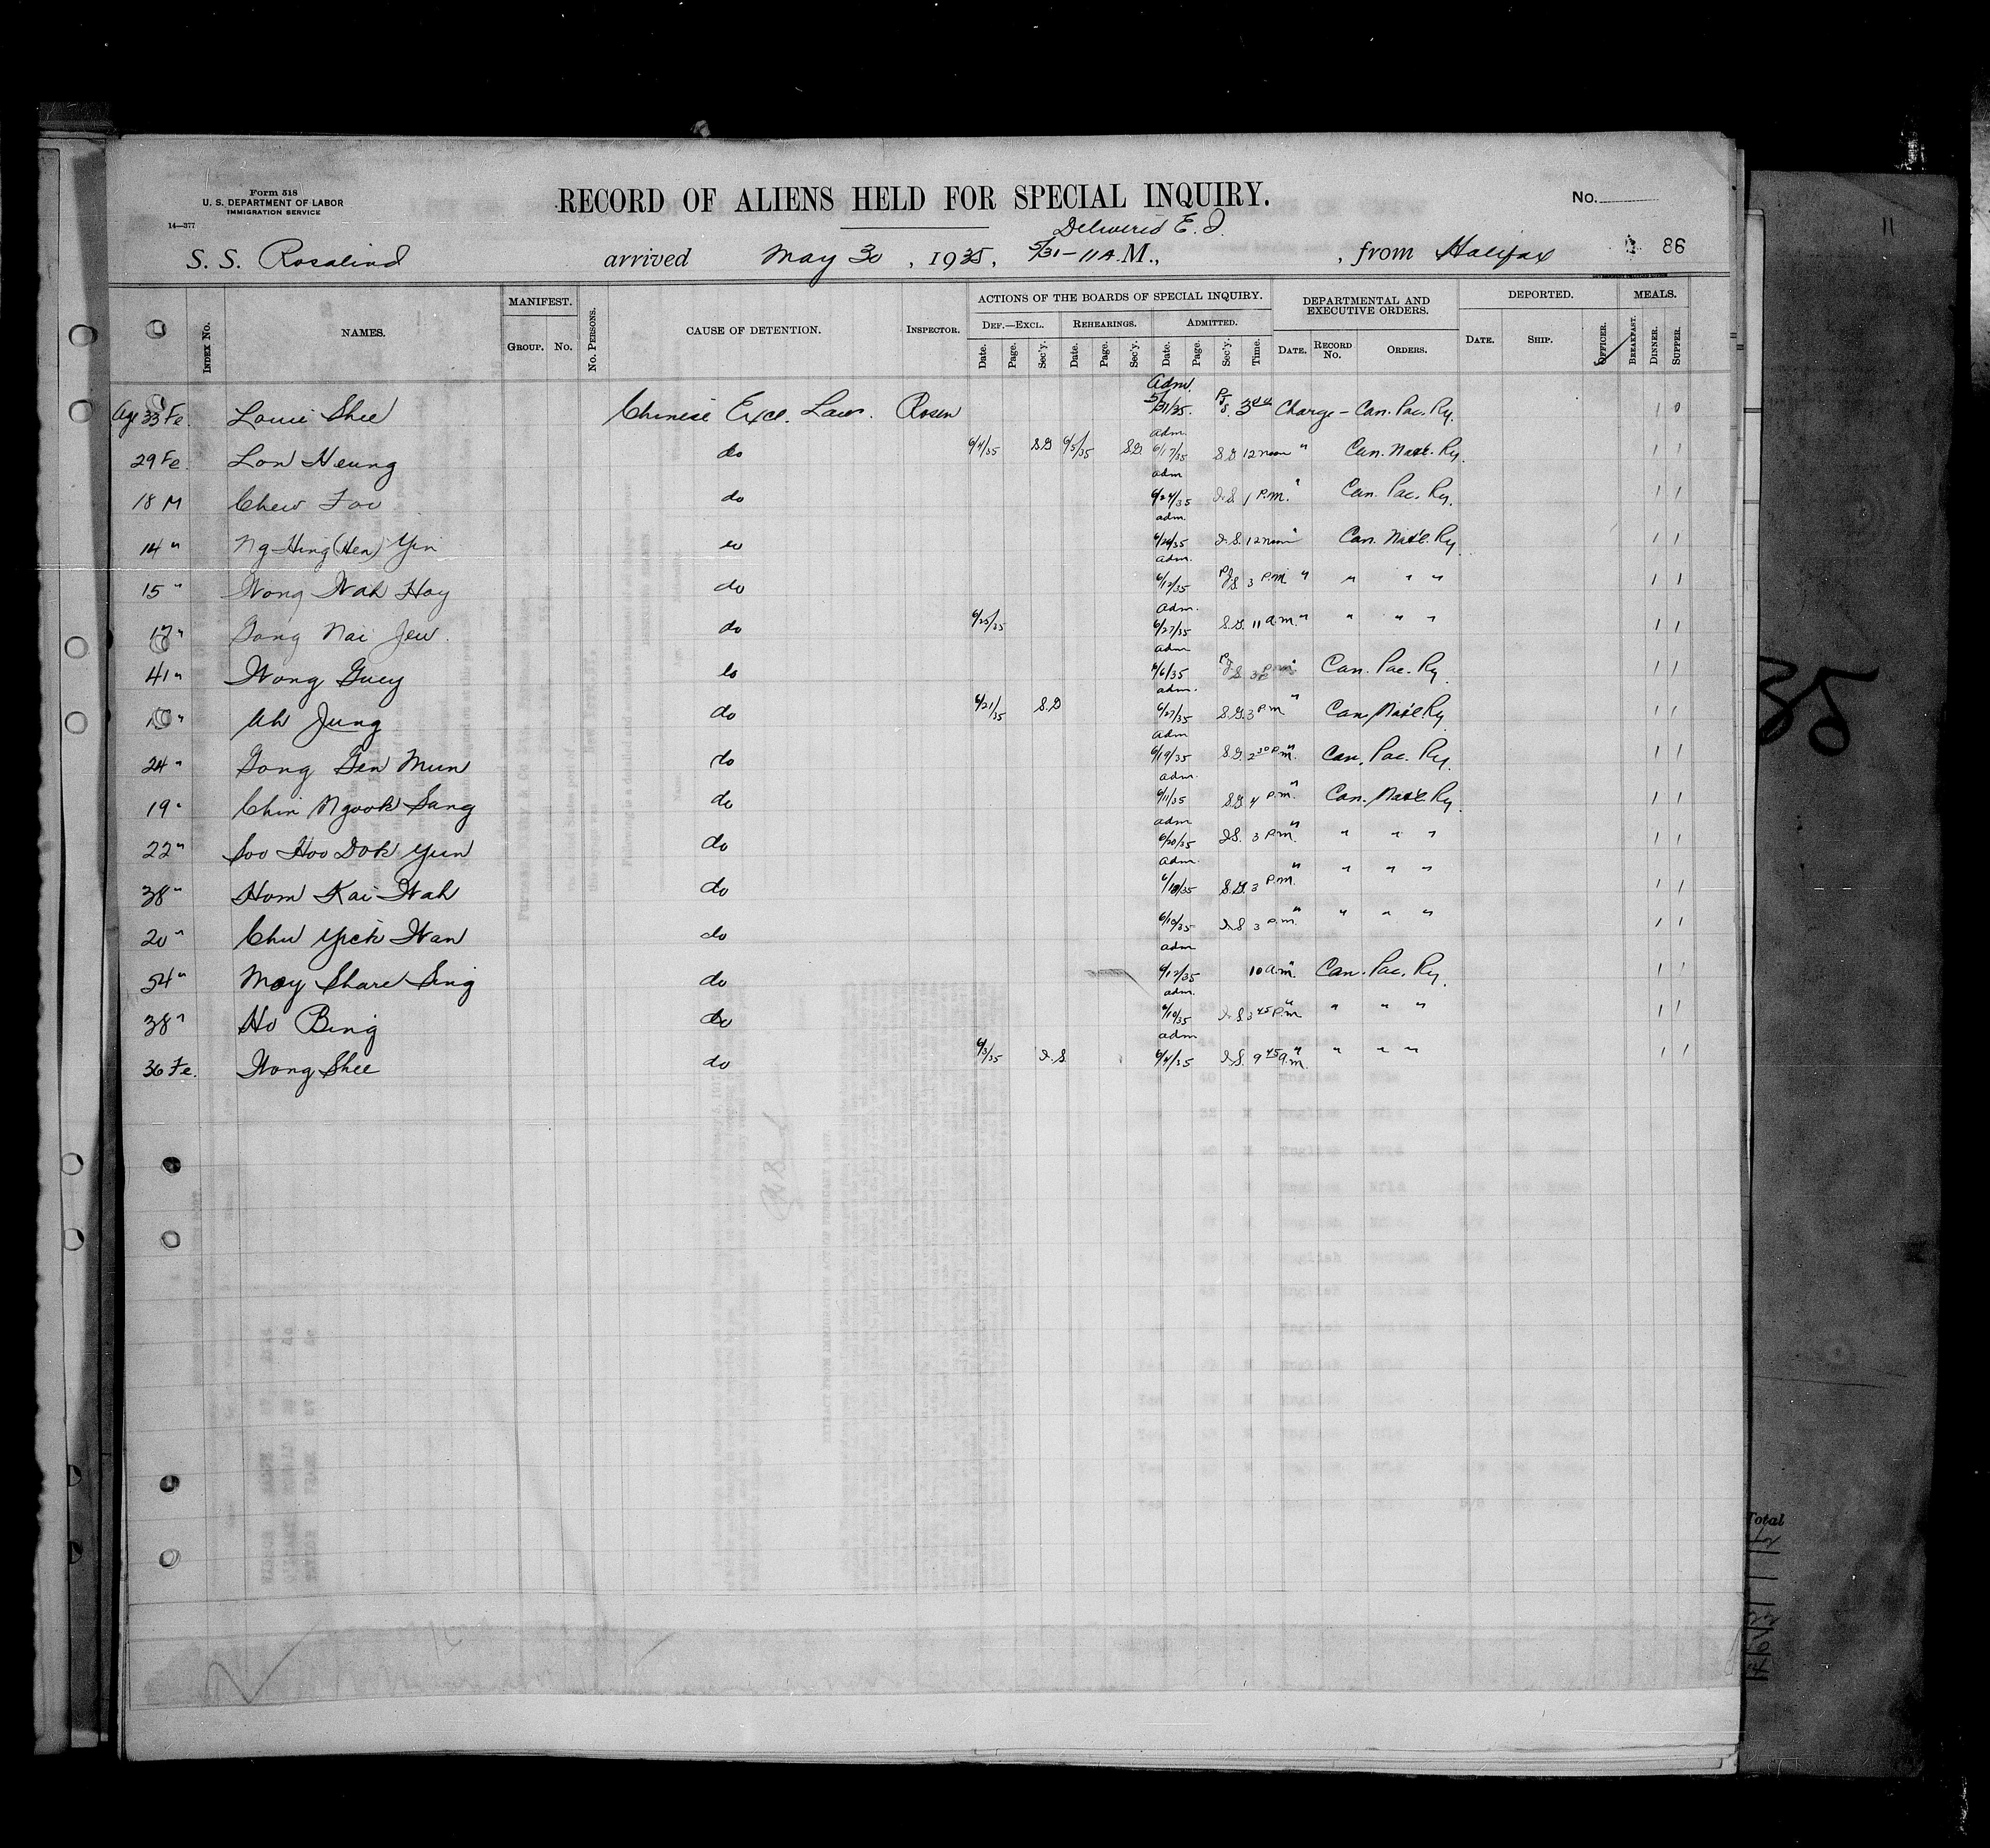 Form 518
U. S. DEPARTMENT OF LABOR
IMMIGRATION SERVICE
14—377
RECORD OF ALIENS HELD FOR SPECIAL INQUIRY.
No.
Delivered E. I.
S. S. Rosalind arrived May 30, 1935, 5/31-11 A.M., , from Halifax 86
INDEX No. NAMES. MANIFEST. GROUP. No. No. PERSONS. CAUSE OF DETENTION. INSPECTOR. ACTIONS OF THE BOARDS OF SPECIAL INQUIRY. DEF.—EXCL. REHEARINGS. ADMITTED. DEPARTMENTAL AND EXECUTIVE ORDERS. DEPORTED. MEALS.
Date. Page. Sec'y. Date. Page. Sec'y. Date. Page. Sec'y. Time. DATE. RECORD No. ORDERS. DATE. SHIP. OFFICER. BREAKFAST. DINNER. SUPPER.
Age 33 Fe. Louie Shee Chinese Excl. Law. Rosen Adm. 5/31/35. Charge - Can. Pac. Ry. 1 0
29 Fe. Lon Heung do 6/4/35 S.G 6/5/35 S.G. adm. 6/17/35 S.G. 12 noon " Can. Nat'l. Ry. 1 1
18 M Chew Foo do adm 6/24/35 I.S. 1 P.m. " Can. Pac. Ry. 1 1
14 " Ng Hing (Hen) Yin do adm. 6/26/35 I.S. 12 noon " Can. Nat'l. Ry. 1 1
15 " Wong Wah Hoy do adm. 6/12/35 3 P.m. " " " " 1 1
" Gong Nai Jew do 6/25/35 adm. 6/27/35 S.G. 11 a.m. " " " " 1 1
41 " Wong Guey do adm 6/6/35 Can. Pac. Ry. 1 1
" Ah Jung do 6/21/35 S.G adm. 6/27/35 S.G. 3 P.m. " Can. Nat'l. Ry 1 1
24 " Gong Gen Mun do adm 6/19/35 S.G. 2 30 P.m. " Can. Pac. Ry. 1 1
19 " Chin Ngook Sang do adm. 6/11/35 S.G. 4 P.m. " Can. Nat'l. Ry. 1 1
22 " Soo Hoo Dok Yun do adm 6/20/35 I.S. 3 P.m. " " " " 1 1
38 " Hom Kai Wah do adm. 6/10/35 S.G. 3 P.m. " " " " 1 1
20 " Chu Yick Wan do 6/10/35 I.S. 3 P.m. " " " " 1 1
54 " Moy Share Sing do adm 6/12/35 10 a.m. " Can. Pac. Ry. 1 1
38 " Ho Bing do adm. 6/10/35 I.S. 3 45 P.m. " " " " 1 1
36 Fe. Wong Shee do 6/3/35 I.S. adm 6/4/35 I.S. 9 45 a.m. " " " " 1 1
11
35
Total